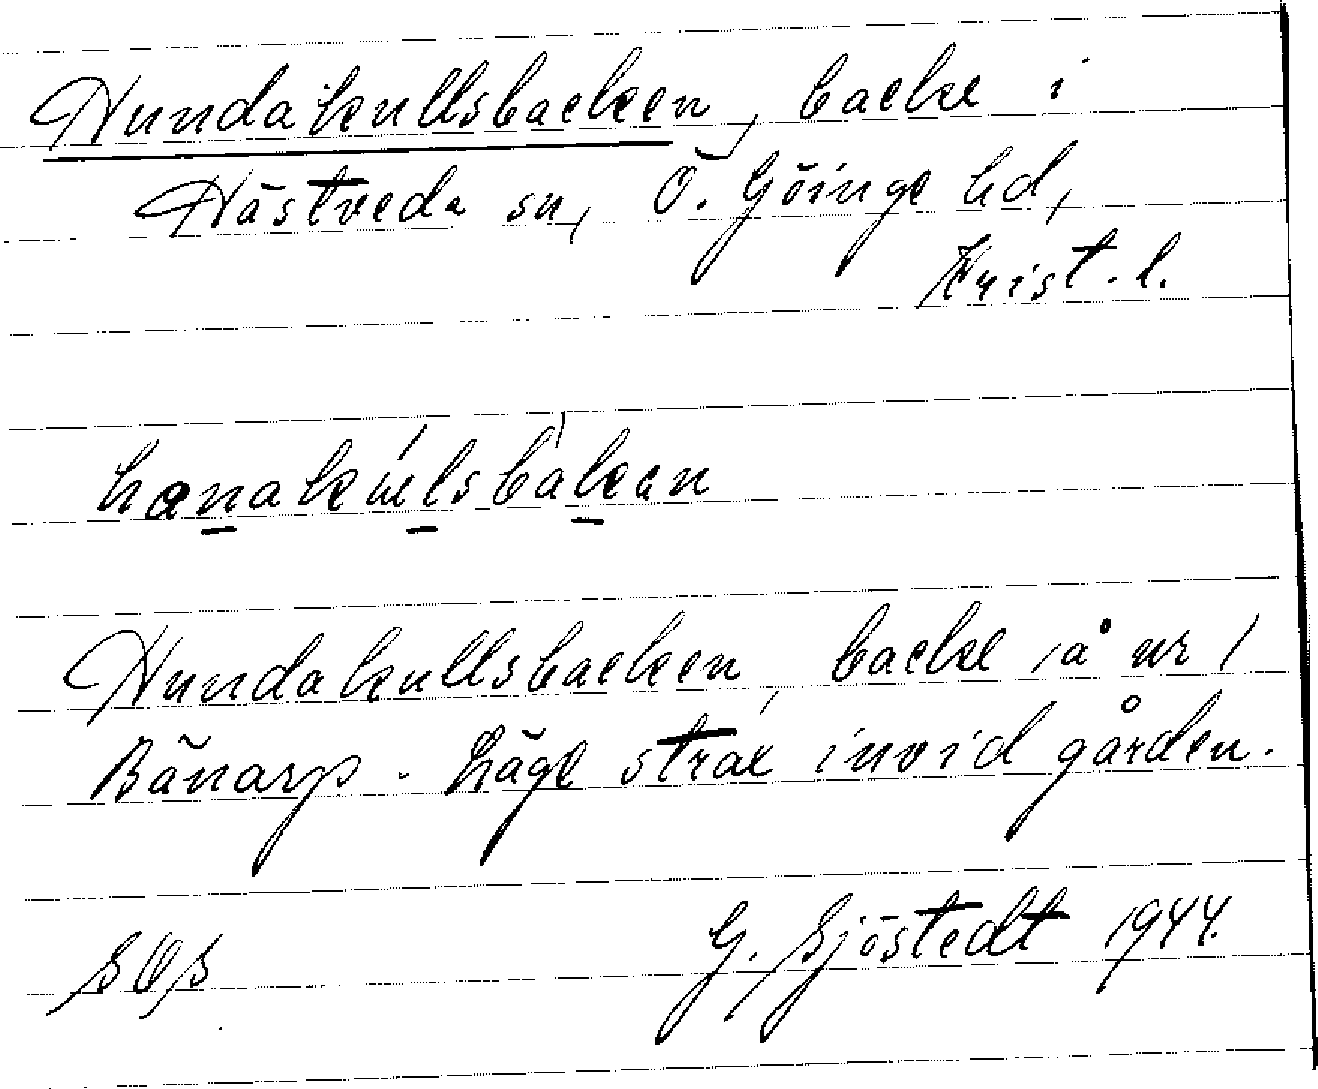 Hundakullsbacken, backe i
Hästveda sn, Ö. Göinge hd,
Krist. l.
hanakulsbakan
Hundakullsbacken, backe å nr 1
Bänarp. Läge strax invid gården.
G. Sjöstedt 1944.